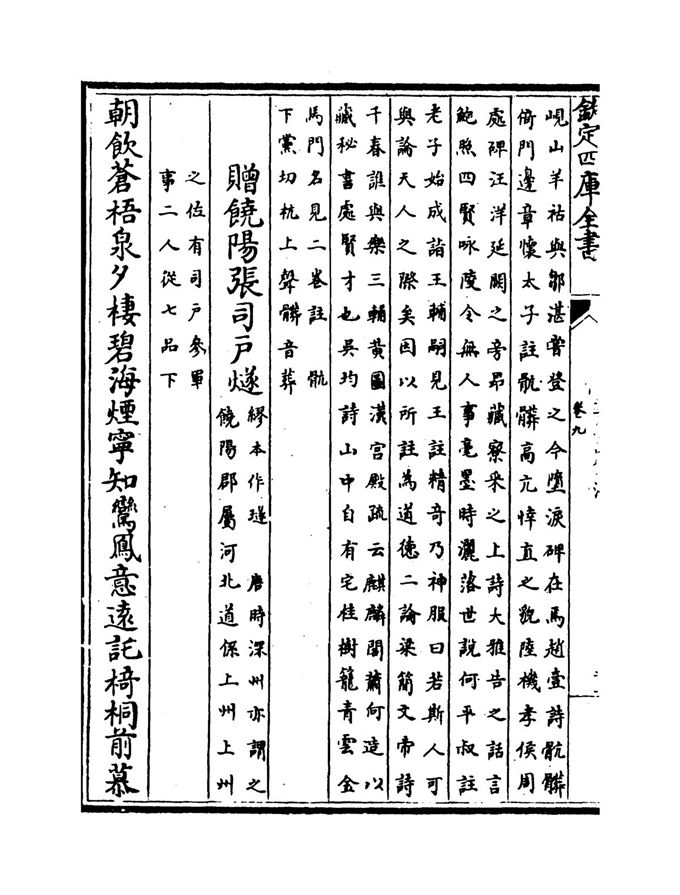 欽定四庫全書
卷九
峴山羊祜與鄒湛嘗登之今墮淚碑在焉趙壹詩骯髒
倚門邊章懷太子註骯髒高亢悻直之貌陸機孝侯周
處碑汪洋延闕之旁昂藏寮采之上詩大雅告之話言
鮑照四賢咏陵令無人事毫墨時灑落世說何平叔註
老子始成詣王輔嗣見王註精奇乃神服曰若斯人可
與論天人之際矣因以所註為道德二論梁簡文帝詩
千春誰與樂三輔黄圖漢宫殿疏云麒麟閣蕭何造以
藏秘書處賢才也吳均詩山中自有宅桂樹籠青雲金
馬門名見二卷註 骯
下黨切杭上聲髒音葬
贈饒陽張司戶燧
繆本作璲 唐時深州亦謂之
饒陽郡屬河北道係上州上州
之佐有司戶參軍
事二人從七品下
朝飲蒼梧泉夕棲碧海煙寧知鸞鳳意遠託椅桐前慕